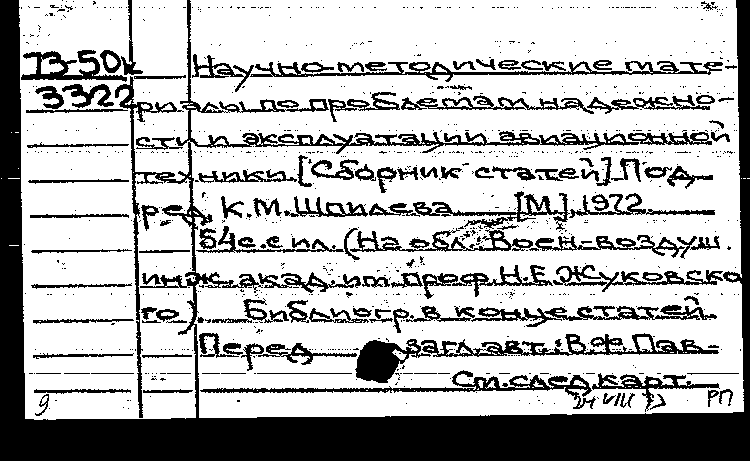 73-50к Научно-методические мате-
3322 риалы по проблемам надежно-
сти и эксплуатации авиационной
техники. [Сборник статей] Под
ред. К.М. Шпилева. [М.], 1972.
54 с. с ил. (На обл.: Воен-воздуш.
инж. акад. им. проф. Н.Е. Жуковско
го). Библиогр. в конце статей.
Перед загл. авт.: В.Ф. Пав-
См. след. карт.
9 24 VIII 73 РП